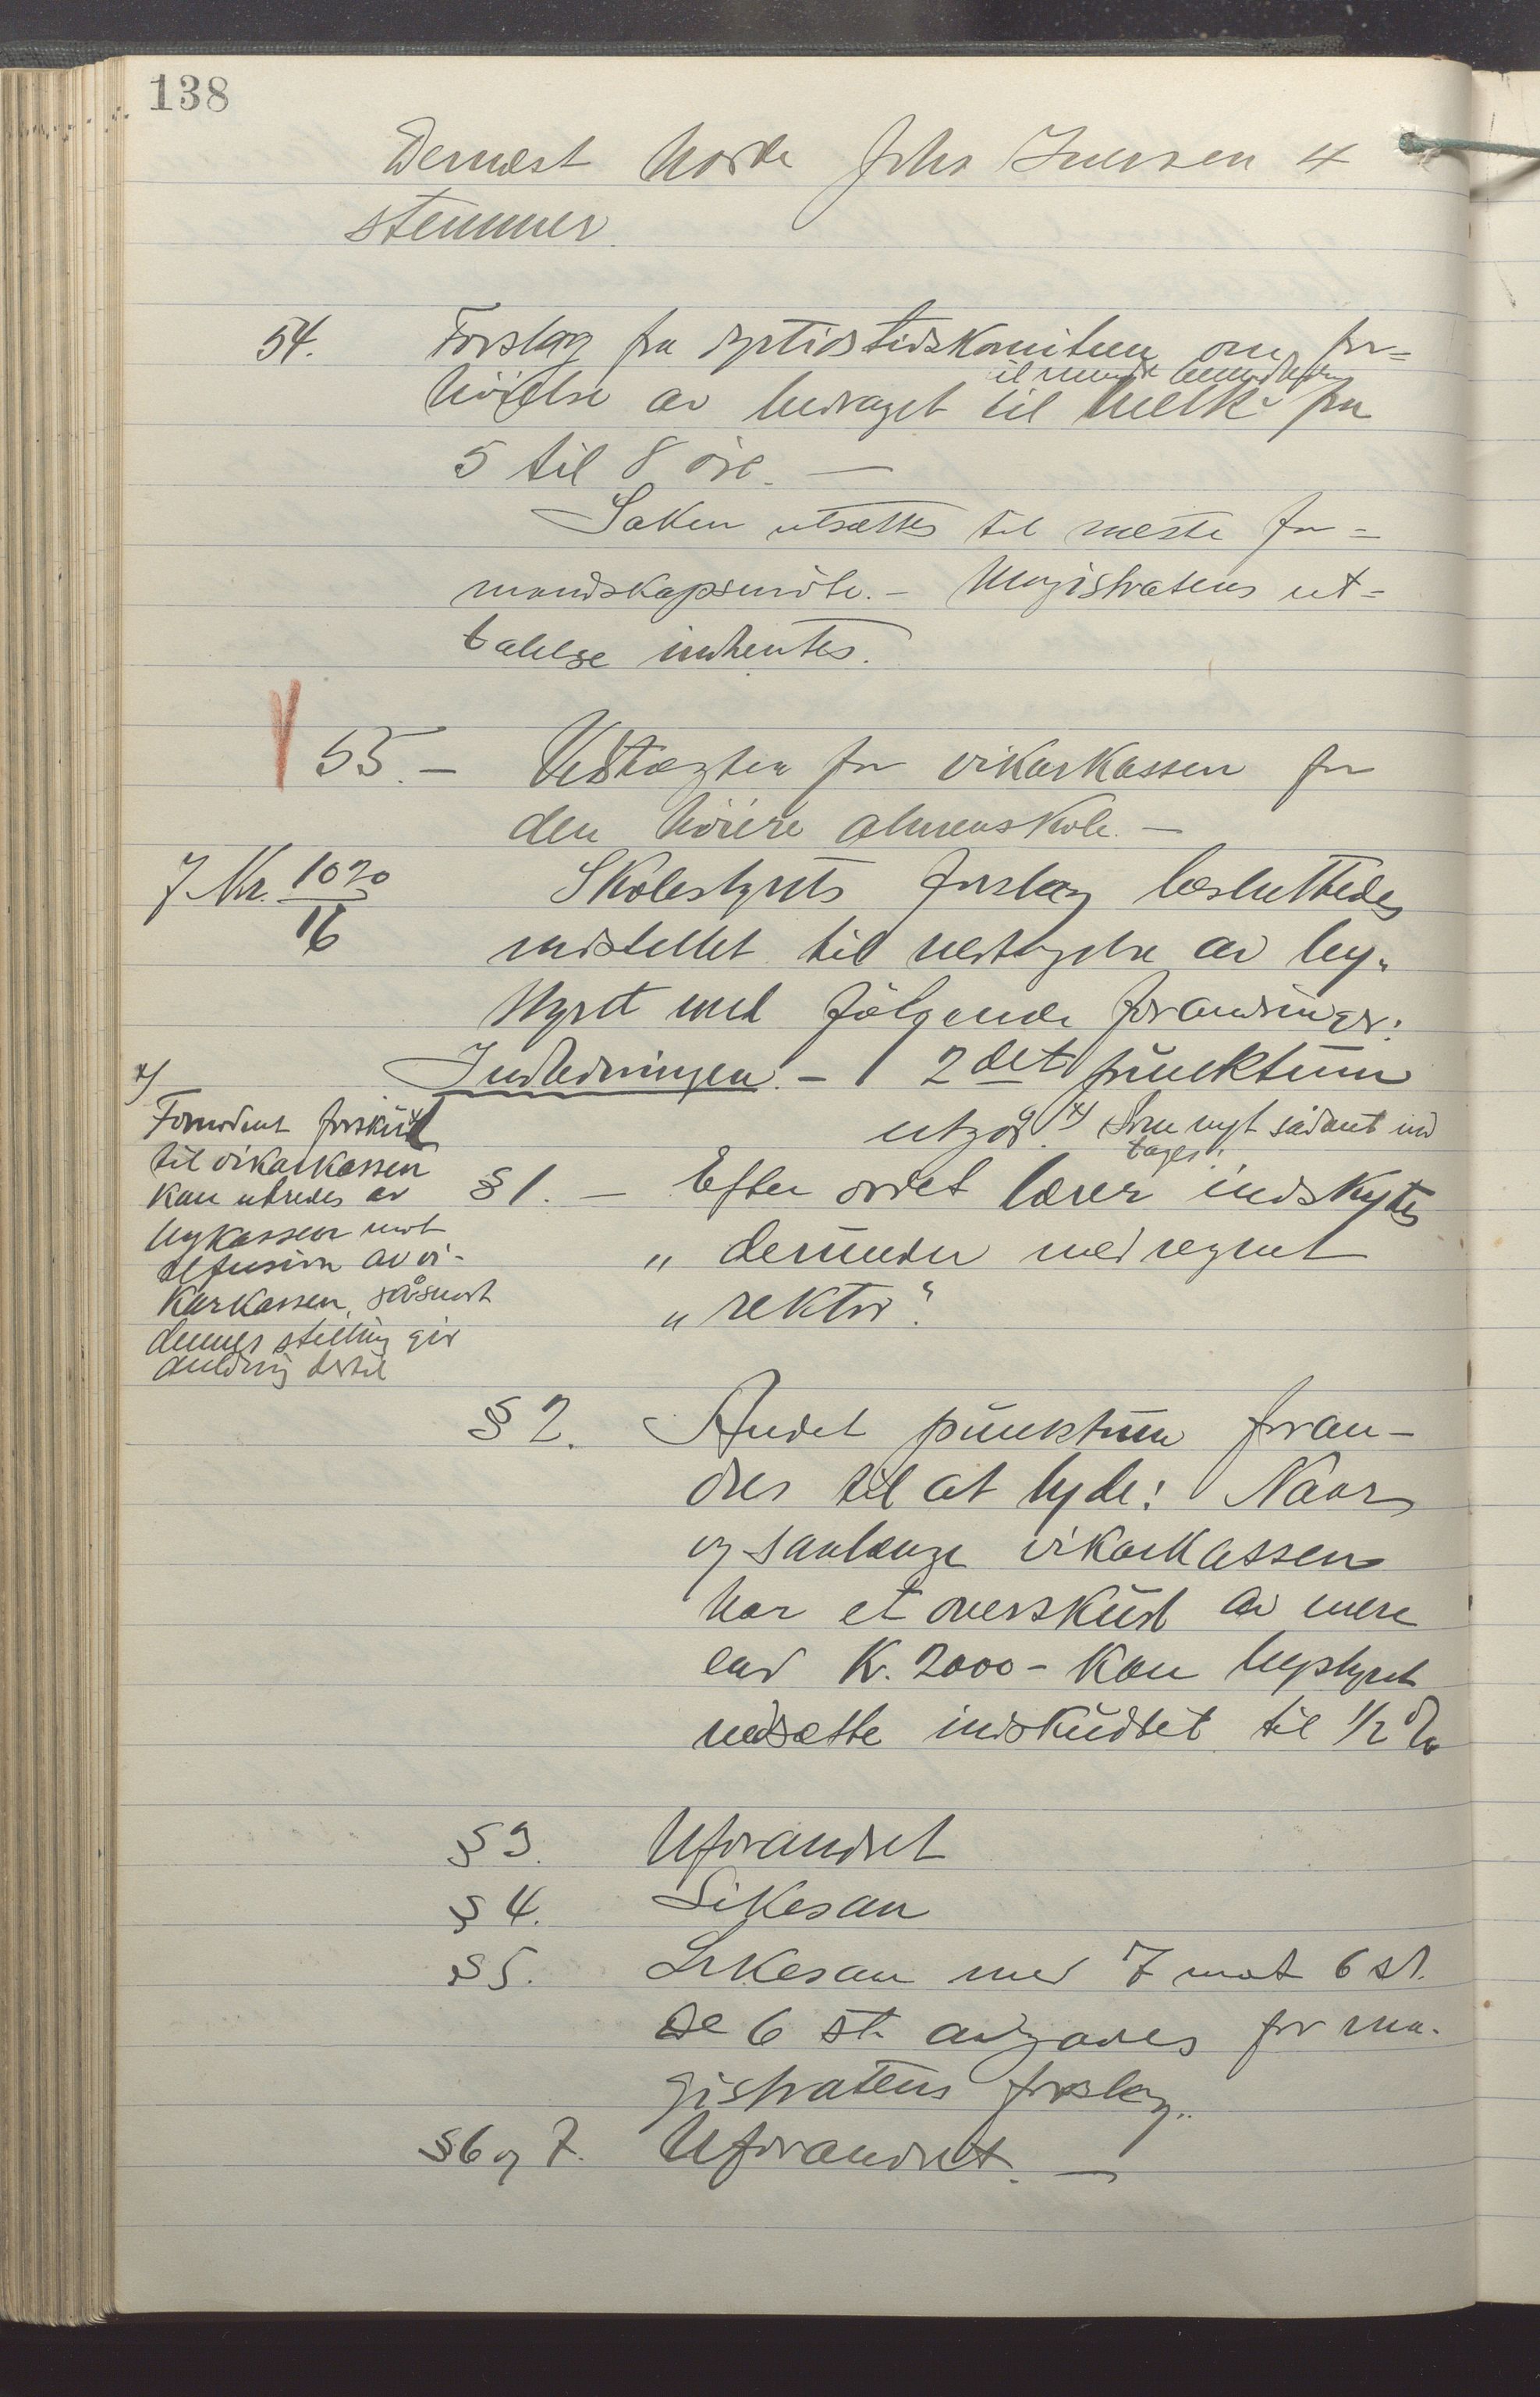 138
Dernæst havde Johs Iversen 4
stemmer.
54. Forslag fra dyrtidstidskomiteen om for=
høielse av bidraget til melk fra
til mindre
5 til 8 øre. —
Saken utsættes til næste for=
mandskapsmöte. — Magistratens ut=
talelse indhentes.
55. — Vedtægter for vikarkassen for
den höiere almenskole. —
J. Nr. 1020/16
Skolestyrets forslag besluttedes
indstillet til vedtagelse av by-
styret med följende forandringer:
Indledningen. — 2det punktum
utgår. x) Som nyt sådant ind
tages:
x)
Fornødent forskud
til vikarkassen
kan utredes av
bykassen mot
refusion av vi-
karkassen, såsnart
dennes stilling gir
anledning dertil
§ 1. — Efter ordet lærer indskytes
„ derunder medregnet
„ rektor".
§ 2. Andet punktum foran-
dres til at lyde: Naar
og saalænge vikarkassen
har et overskud av mere
end Kr. 2000 - kan bystyret
nedsætte indskuddet til 1/2 %
§ 3. Uforandret
§ 4. Likesaa
§ 5. Likesaa med 7 mot 6 st.
De 6 st. avgaves for ma-
gistratens forslag.
§ 6 og 7. Uforandret. —